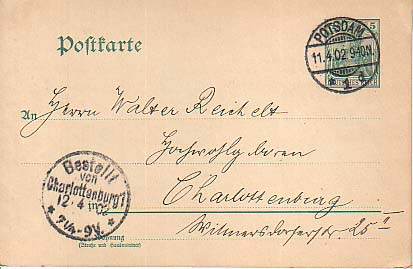 Postkarte
5
POTSDAM
11.4.02 9-10N.
* 1 g
An Herrn Walter Reichelt
Hochwohlgeboren
Charlottenburg
Wilmersdorferstr. 25 II
Bestellt
von
Charlottenburg 1
12.4.02
* 7¼-9V. *
Wohnung
(Straße und Hausnummer)